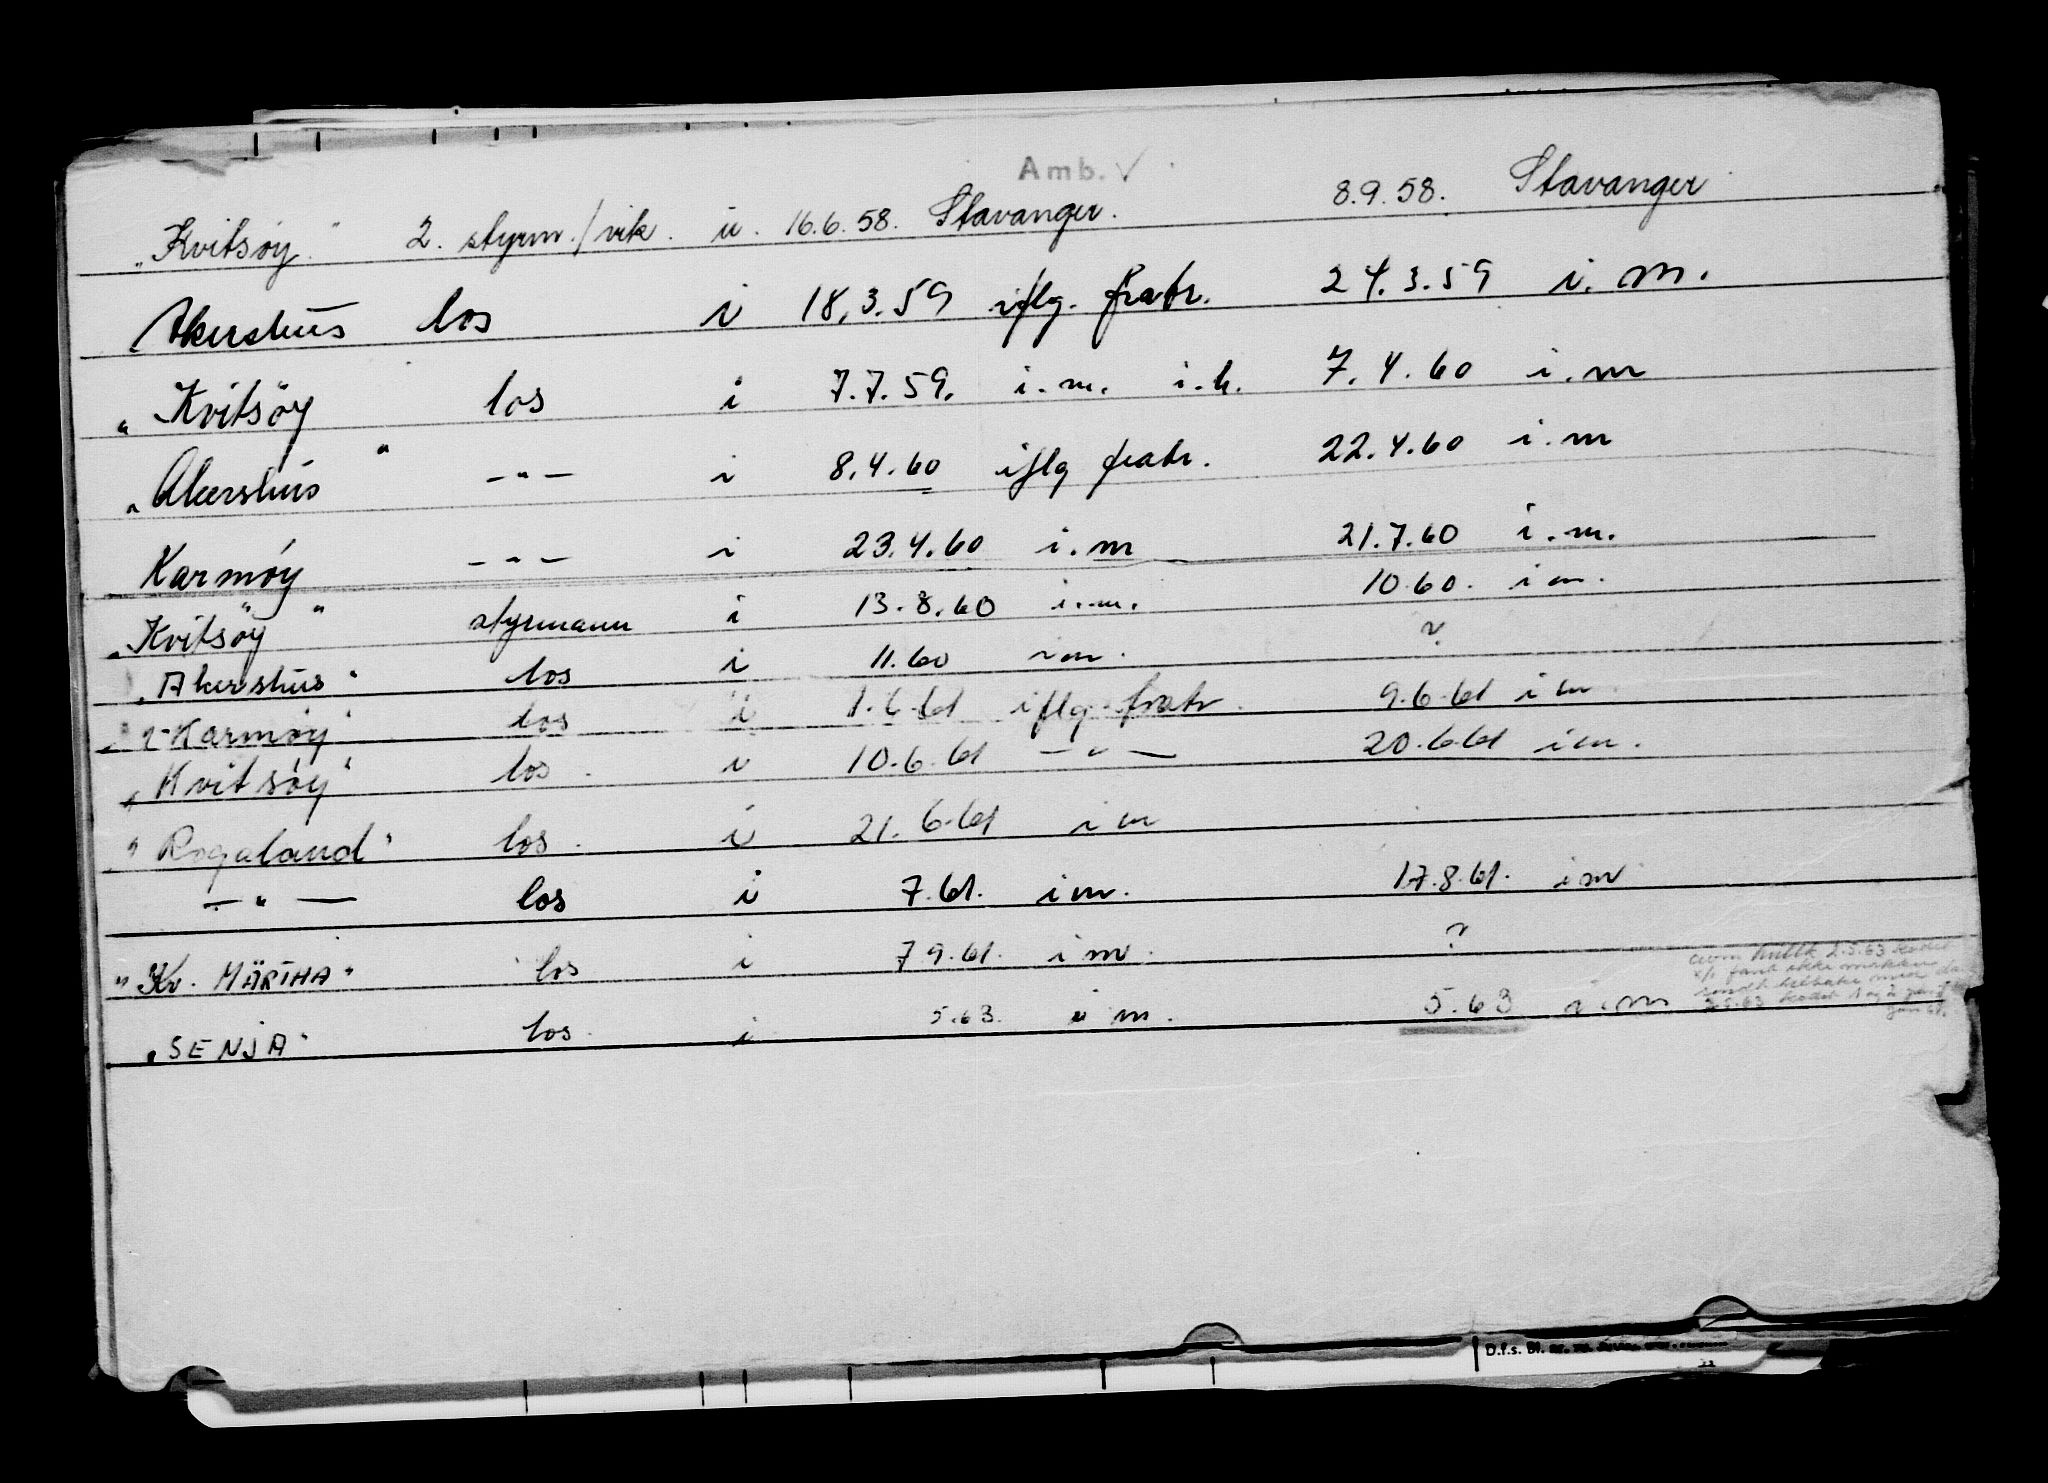 Amb. ✓
"Kvitsøy" 2. styrm./vik. u. 16.6.58. Stavanger. 8.9.58. Stavanger
Akershus los i 18.3.59 iflg. fratr. 24.3.59 i.m.
"Kvitsøy los i 7.7.59. i.m. i.h. 7.4.60 i.m
"Akershus" -"- i 8.4.60 iflg fratr. 22.4.60 i.m
Karmøy -"- i 23.4.60 i.m 21.7.60 i.m.
"Kvitsøy" styrmann i 13.8.60 i.m. 10.60. i m.
"Akershus" los i 11.60 i m. ?
"Karmøy" los i 1.6.61 iflg. fratr. 9.6.61 i m
"Kvitsøy" los. i 10.6.61 -"- 20.6.61 i m.
"Rogaland" los. i 21.6.61 i m
-"- los i 7.61. i m. 17.8.61. i m
"Kr. MÄRTHA" los i 7 9.61. i m. ?
"SENJA" los. i 5.63. i m. 5.63 i.m
2.5.63
D.f.s. Bl.